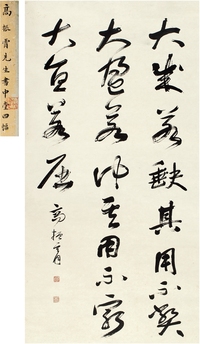 大成若缺其用不弊
大盈若冲其用不窮
大直若屈
高振霄
高振霄先生書中堂四帖